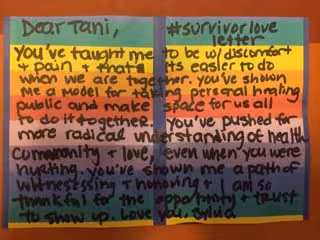 Dear Tani,
#survivorlove
letter
You've taught me to be w/ discomfort
+ pain + that its easier to do
when we are together. you've shown
me a model for taking personal healing
public and make space for us all
to do it together. you've pushed for
more radical understanding of health
community + love, even when you were
hurting. you've shown me a path of
witnesssing + honoring + I am so
thankful for the opportunity + trust
to show up. Love you, Sylvia